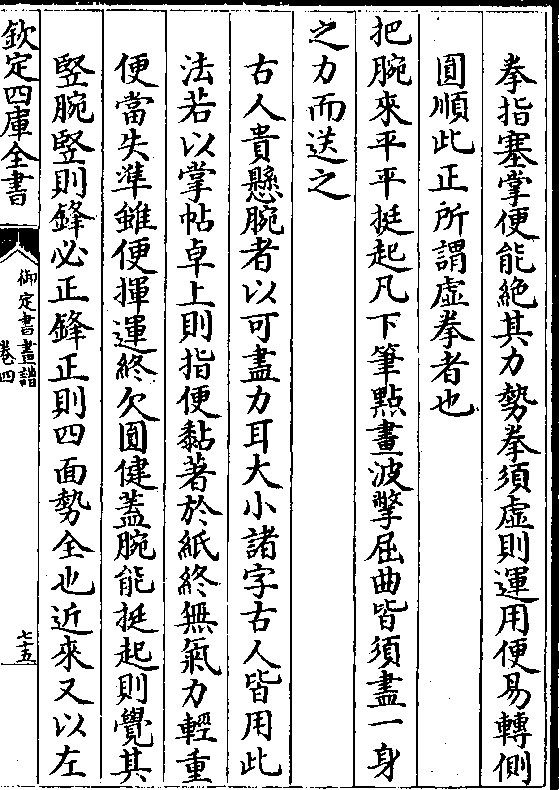 拳指塞掌便能絶其力勢拳須虚則運用便易轉側
圓順此正所謂虚拳者也
把腕來平平挺起凡下筆點畫波擎屈曲皆須盡一身
之力而送之
古人貴懸腕者以可盡力耳大小諸字古人皆用此
法若以掌帖卓上則指便黏著於紙終無氣力輕重
便當失準雖便揮運終欠圓健蓋腕能挺起則覺其
竪腕竪則鋒必正鋒正則四面勢全也近來又以左
欽定四庫全書
御定書畫譜
卷四
七十五